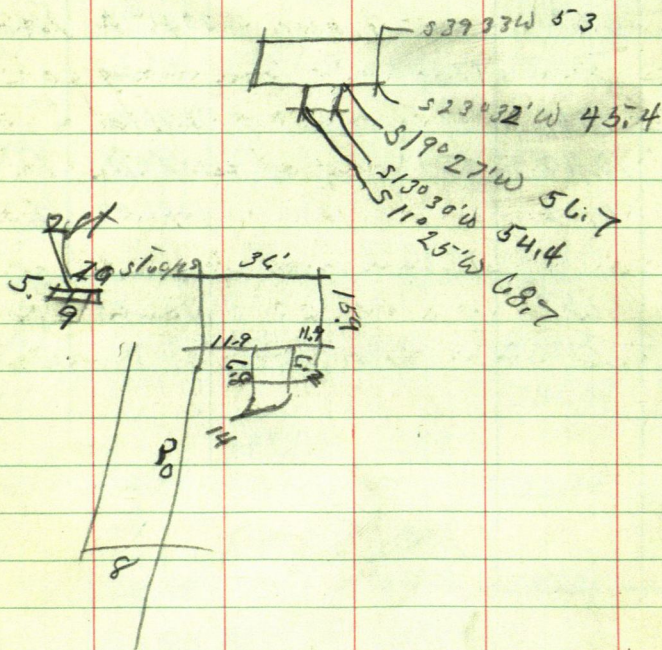 S 39 33 W 53
S 23° 32' W 45.4
S 19° 27' W 56.7
S 13° 30' W 54.4
S 11° 25' W 68.7
2 ft
20 slopes
5.
9
36'
15.9
11.9 11.9
6.8
14
80
8